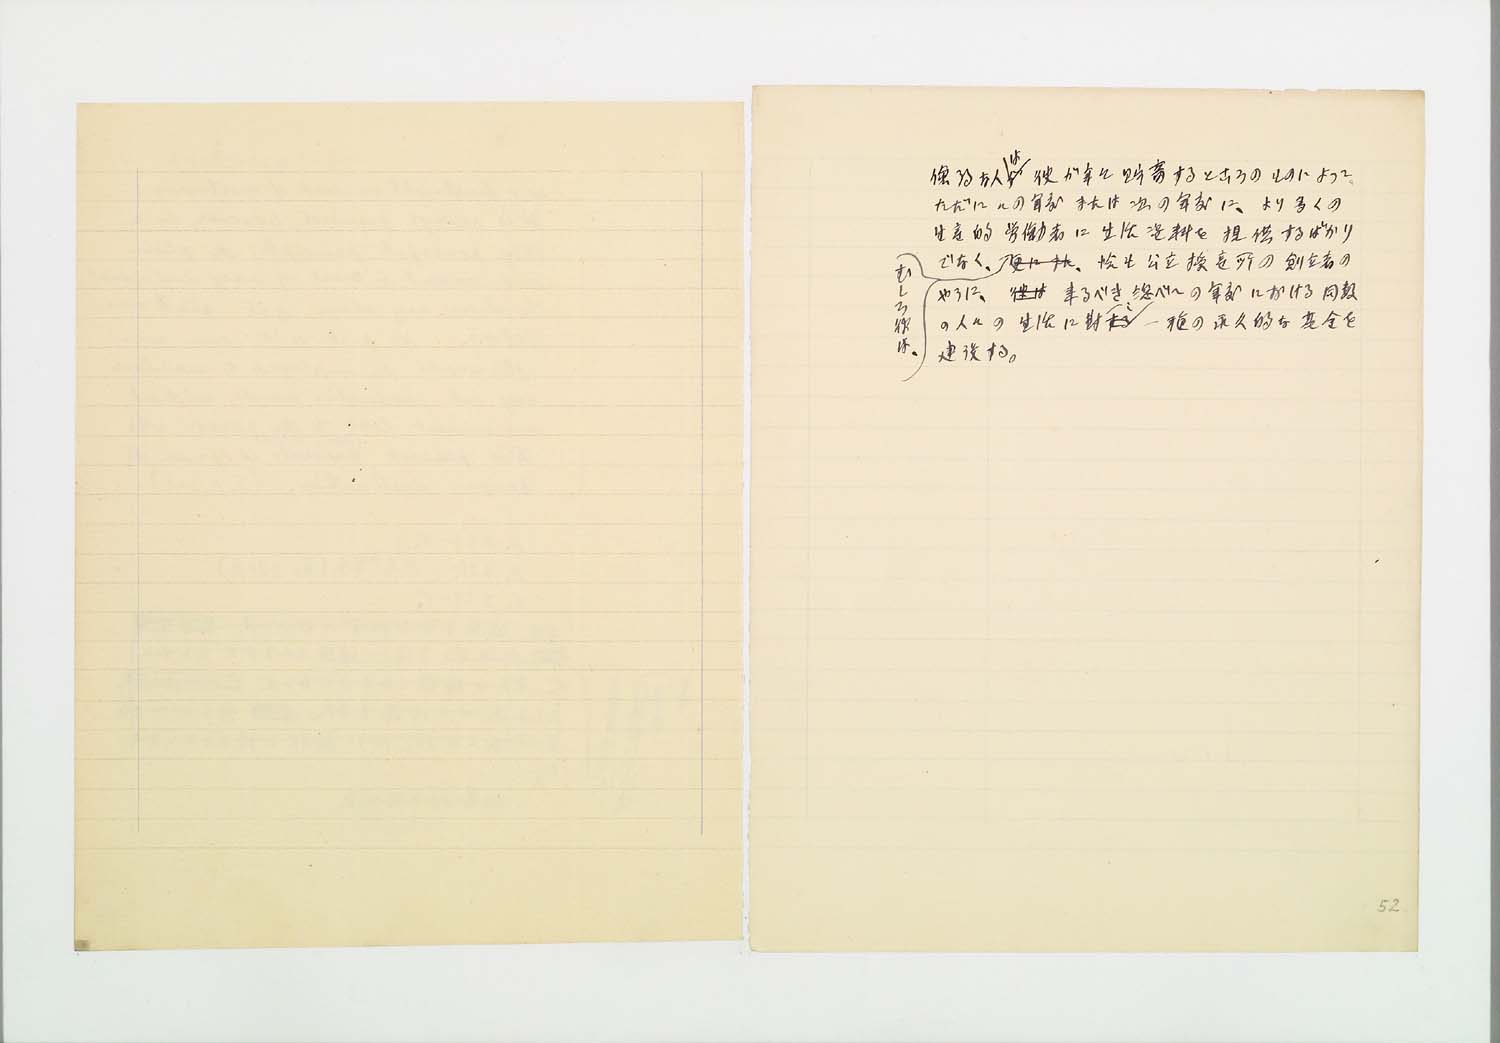 倹約な人は彼が年々貯蓄するところのものによって、
ただにその年度または次の年度に、より多くの
生産的労働者に生活資料を提供するばかり
でなく、更にまた、恰も公立授産所の創立者の
やうに、彼は来るべき総べての年度における同数
の人々の生活に対し一種の永久的な基金を
建設する。
むしろ彼は、
52